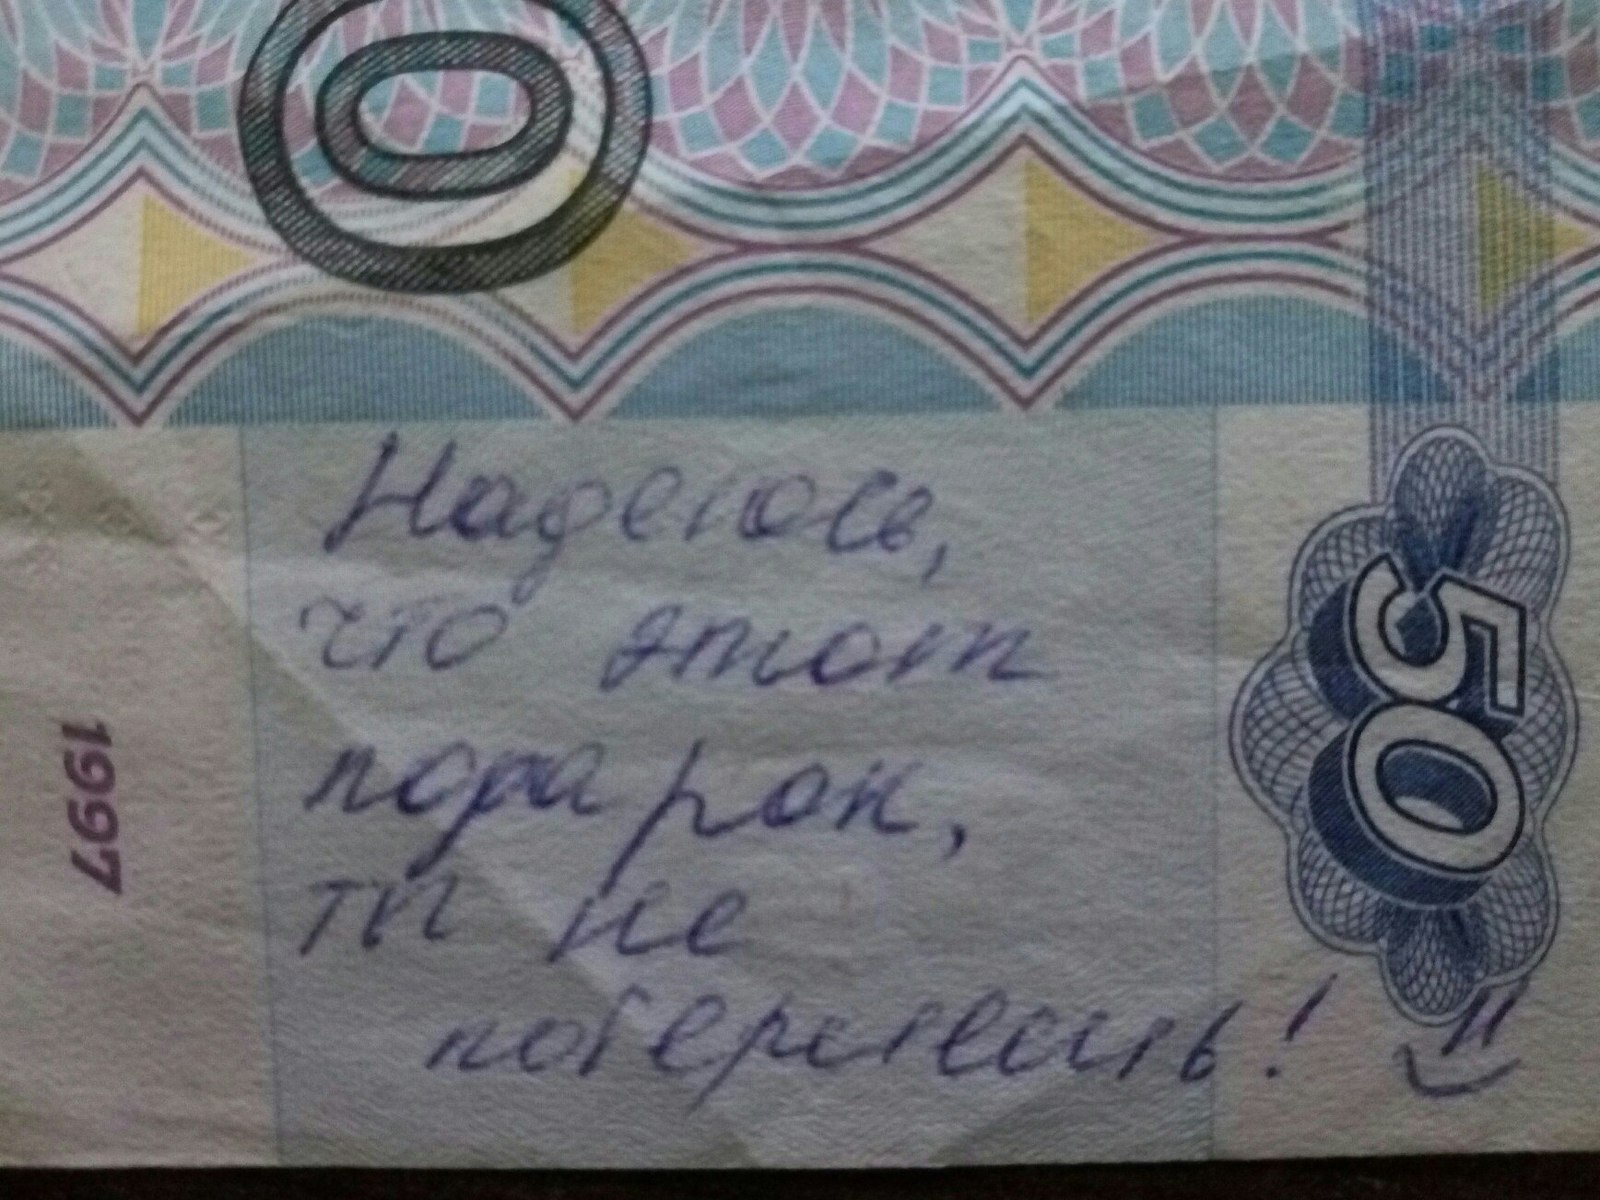 0
Надеюсь,
что этот
подарок,
ты не
потеряешь!
50
1997